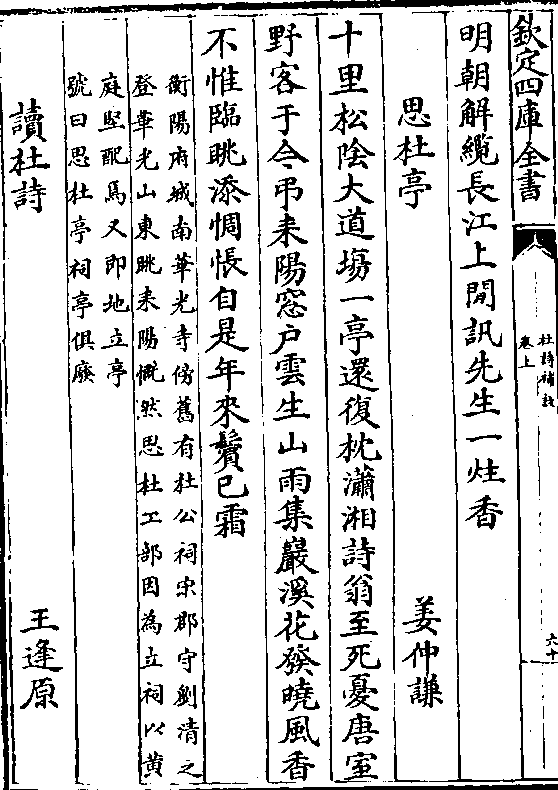 欽定四庫全書
杜詩補註
卷上
六十
明朝解纜長江上聞訊先生一炷香
思杜亭
姜仲謙
十里松陰大道場一亭還復枕瀟湘詩翁至死憂唐室
野客于今弔耒陽窓户雲生山雨集巖溪花發曉風香
不惟臨眺添惆悵自是年來鬢已霜
衡陽府城南華光寺傍舊有杜公祠宋郡守劉清之
登華光山東眺耒陽慨然思杜工部因為立祠以黄
庭堅配焉又即地立亭
號曰思杜亭祠亭俱廢
讀杜詩
王逢原